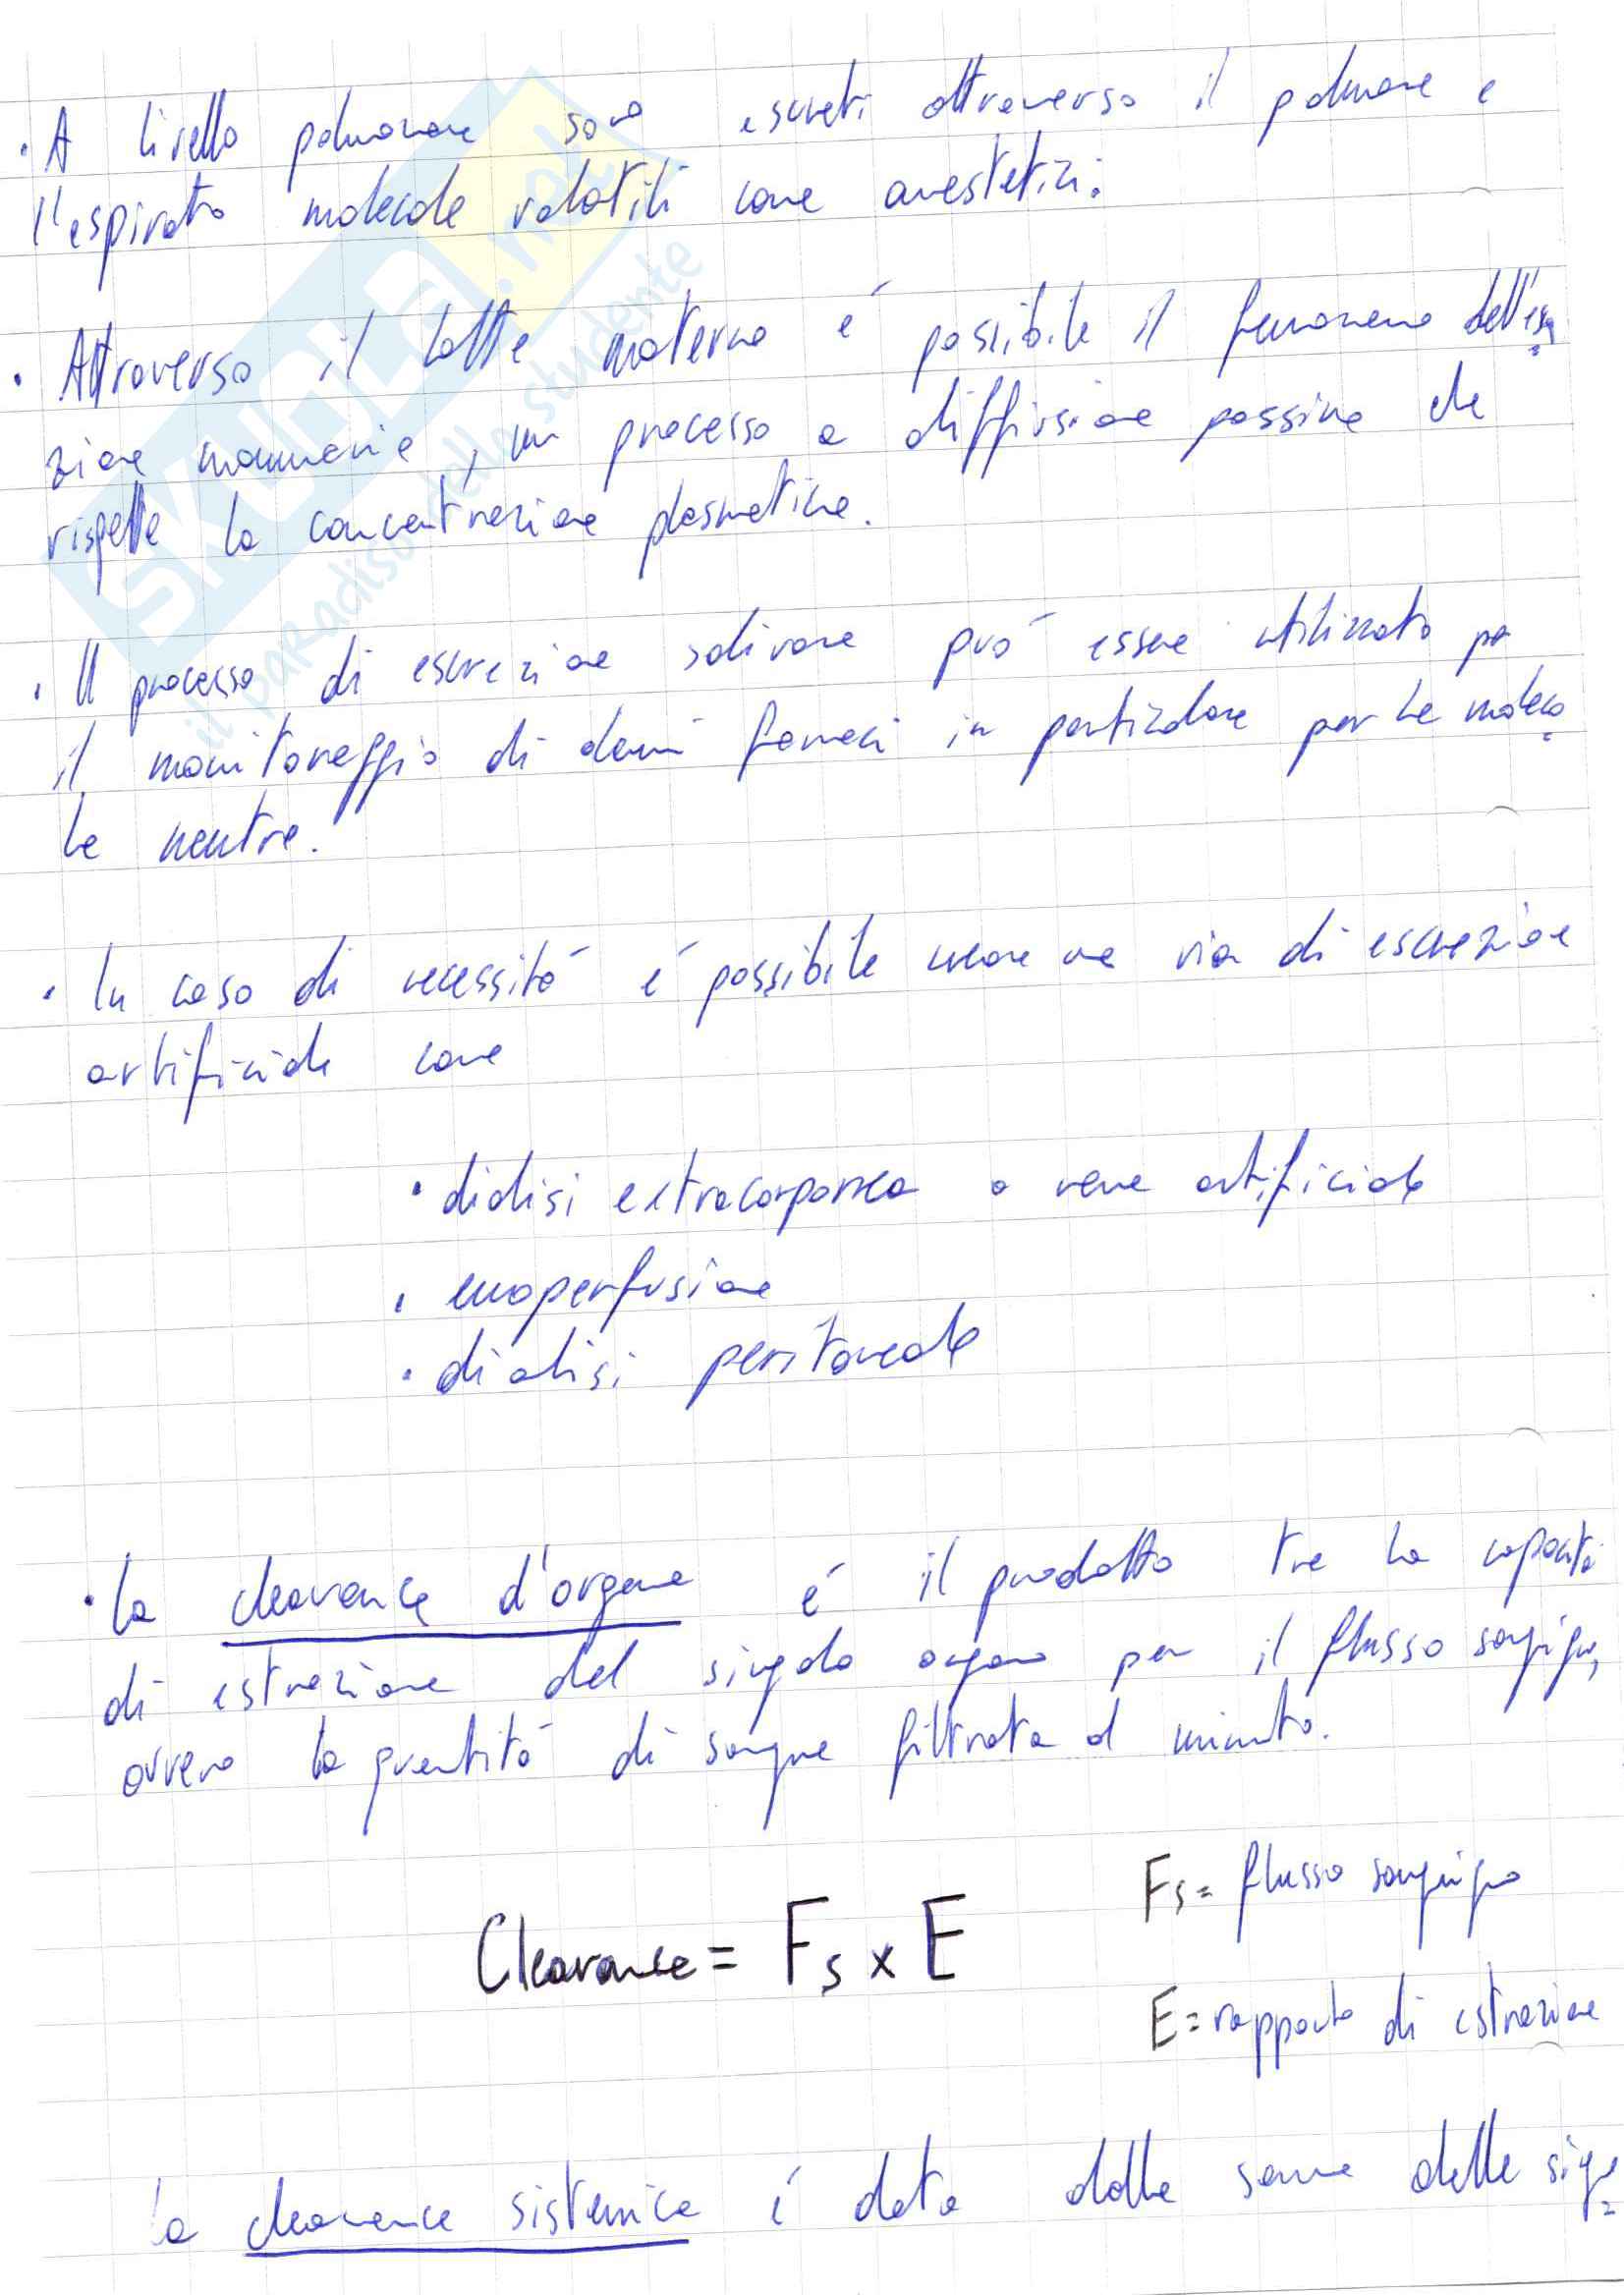 · A livello polmonare sono escreti attraverso il polmone e
l'espirato molecole volatili come anestetici.
· Attraverso il latte materno é possibile il fenomeno dell'escre
zione mammaria, un processo a diffusione passiva che
rispetta la concentrazione plasmatica.
· Il processo di escrezione salivare puó essere utilizzato per
il monitoraggio di alcuni farmaci in particolare per le moleco
le neutre.
· In caso di necessitá é possibile creare una via di escrezione
artificiale come
· dialisi extracorporea o rene artificiale
· emoperfusione
· dialisi peritoneale
· La clearance d'organo é il prodotto tra la capacitá
di estrazione del singolo organo per il flusso sanguigno,
ovvero la quantitá di sangue filtrata al minuto.
Fs = flusso sanguigno
Clearance = Fs x E
E = rapporto di estrazione
La clearance sistemica é data dalla somma delle
SKUOLA.net
il paradiso dello studente